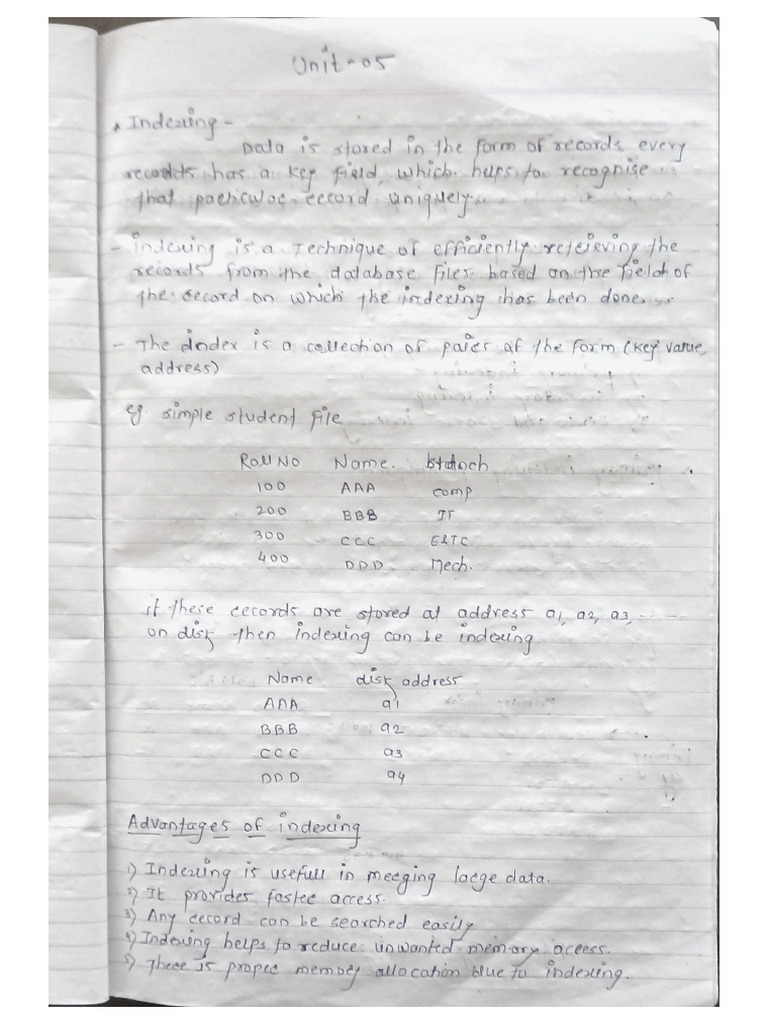 Unit-05
* Indexing -
Data is stored in the form of records every
records has a key field, which helps to recognise
that particular record uniquely.
- Indexing is a Technique of efficiently retrieving the
records from the database files based on the field of
the record on which the indexing has been done.
- The index is a collection of pairs of the form (key value,
address)
eg simple student file
Roll No Name. branch
100 AAA comp
200 BBB IT
300 CCC E&TC
400 DDD Mech.
if these records are stored at address a1, a2, a3, ----
on disk then indexing can be indexing.
Name disk address
AAA a1
BBB a2
CCC a3
DDD a4
Advantages of indexing
1) Indexing is usefull in merging large data.
2) It provides faster access.
3) Any record can be searched easily
4) Indexing helps to reduce unwanted memory access.
5) There is proper memory allocation due to indexing.